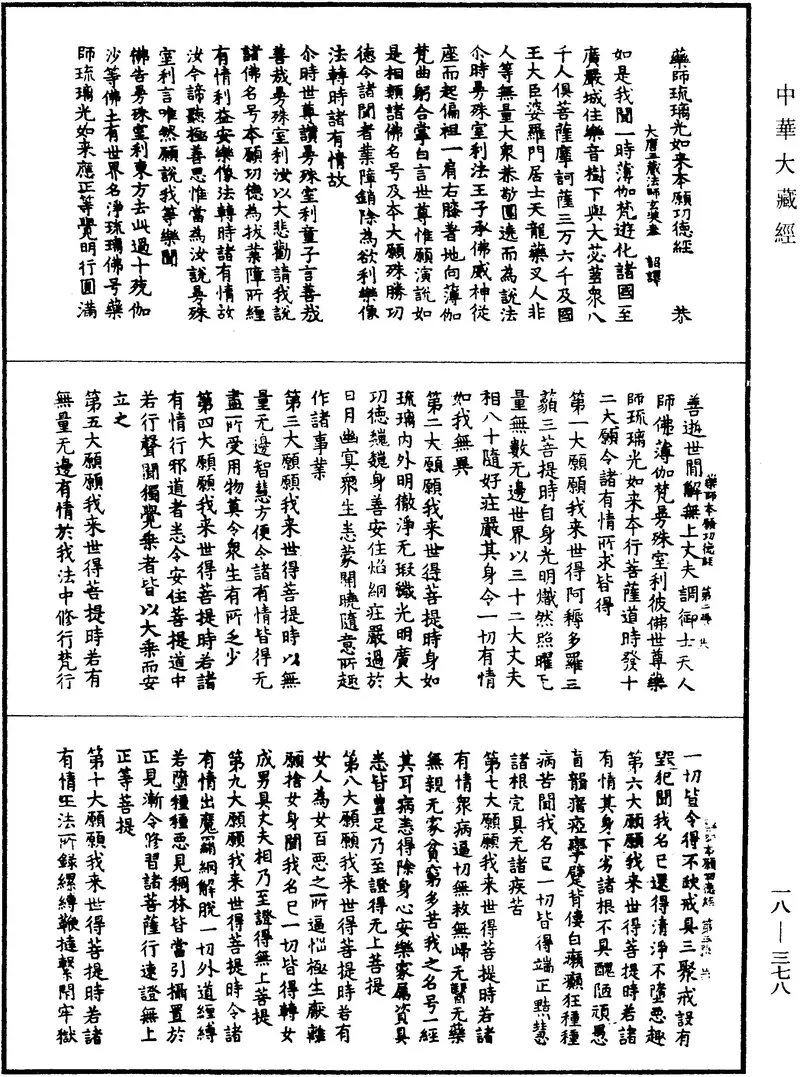 中華大藏經
藥師琉璃光如来本願功德經　恭
大唐三藏法師玄奘奉　詔譯
如是我聞一時薄伽梵遊化諸國至
廣嚴城住樂音樹下與大苾蒭衆八
千人俱菩薩摩訶薩三万六千及國
王大臣婆羅門居士天龍藥叉人非
人等無量大衆恭敬圍遶而為說法
尒時曼殊室利法王子承佛威神從
座而起偏袒一肩右膝著地向薄伽
梵曲躬合掌白言世尊惟願演說如
是相類諸佛名号及本大願殊勝功
德令諸聞者業障銷除為欲利樂像
法轉時諸有情故
尒時世尊讚曼殊室利童子言善哉
善哉曼殊室利汝以大悲勸請我說
諸佛名号本願功德為拔業障所纏
有情利益安樂像法轉時諸有情故
汝今諦聽極善思惟當為汝說曼殊
室利言唯然願說我等樂聞
佛告曼殊室利東方去此過十殑伽
沙等佛土有世界名淨琉璃佛号藥
師琉璃光如来應正等覺明行圓滿
藥師本願功德經　第二張　恭
善逝世間解無上丈夫調御士天人
師佛薄伽梵曼殊室利彼佛世尊藥
師琉璃光如来本行菩薩道時發十
二大願令諸有情所求皆得
第一大願願我来世得阿耨多羅三
藐三菩提時自身光明熾然照曜无
量無數无邊世界以三十二大丈夫
相八十隨好莊嚴其身令一切有情
如我無異
第二大願願我来世得菩提時身如
琉璃内外明徹淨无瑕穢光明廣大
功德巍巍身善安住焰網莊嚴過於
日月幽冥衆生悉蒙開曉隨意所趣
作諸事業
第三大願願我来世得菩提時以無
量无邊智慧方便令諸有情皆得无
盡所受用物莫令衆生有所乏少
第四大願願我来世得菩提時若諸
有情行邪道者悉令安住菩提道中
若行聲聞獨覺乘者皆以大乘而安
立之
第五大願願我来世得菩提時若有
無量无邊有情於我法中修行梵行
藥師本願功德經　第三張　恭
一切皆令得不缺戒具三聚戒設有
毀犯聞我名已還得清淨不墮惡趣
第六大願願我来世得菩提時若諸
有情其身下劣諸根不具醜陋頑愚
盲聾瘖瘂攣躄背僂白癩癲狂種種
病苦聞我名已一切皆得端正黠慧
諸根完具无諸疾苦
第七大願願我来世得菩提時若諸
有情衆病逼切無救無歸无醫无藥
無親无家貧窮多苦我之名号一經
其耳病悉得除身心安樂家屬資具
悉皆豐足乃至證得无上菩提
第八大願願我来世得菩提時若有
女人為女百惡之所逼惱極生厭離
願捨女身聞我名已一切皆得轉女
成男具丈夫相乃至證得無上菩提
第九大願願我来世得菩提時令諸
有情出魔羂網解脫一切外道纏縛
若墮種種惡見稠林皆當引攝置於
正見漸令修習諸菩薩行速證無上
正等菩提
第十大願願我来世得菩提時若諸
有情王法所錄縲縛鞭撻繫閉牢獄
一八—三七八